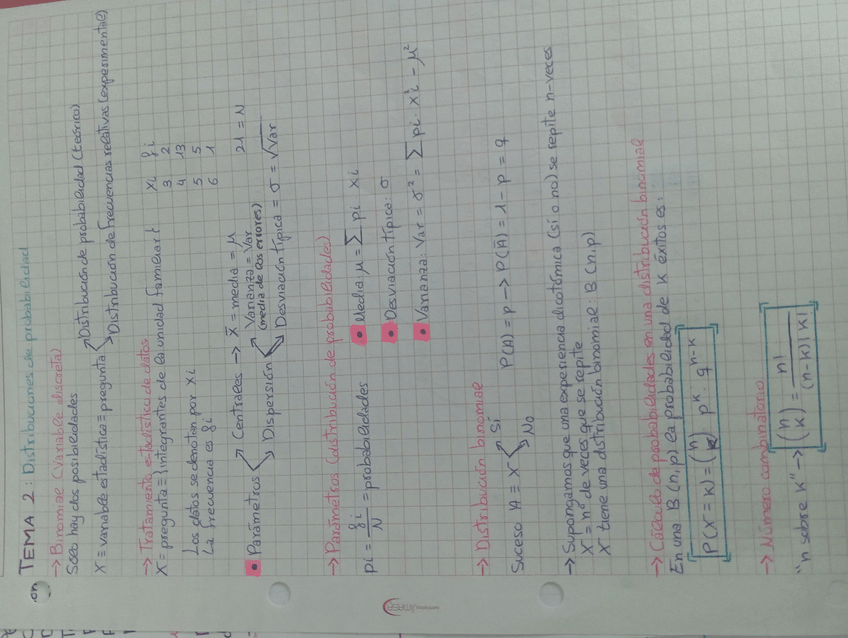 TEMA 2: Distribuciones de probabilidad
→ Binomial (variable discreta)
Sólo hay dos posibilidades
X = variable estadística = pregunta
Distribución de probabilidad (teórico)
Distribución de frecuencias relativas (experimental)
→ Tratamiento estadístico de datos
X = pregunta = {integrantes de la unidad familiar}
Los datos se denotan por xi
La frecuencia es fi
xi fi
3 2
4 13
5 5
6 1
21 = N
Parámetros
Centrales → X̄ = media = μ
Dispersión
Varianza = Var
(media de los errores)
Desviación típica = σ = √Var
→ Parámetros (distribución de probabilidades)
pi = fi/N = probabilidades
Media: μ = ∑ pi xi
Desviación típica: σ
Varianza: Var = σ² = ∑ pi · xi² − μ²
→ Distribución binomial
Suceso A = X
Sí
No
P(A) = p → P(Ā) = 1 − p = q
→ Supongamos que una experiencia dicotómica (sí o no) se repite n-veces
X = nº de veces que se repite
X tiene una distribución binomial: B(n,p)
→ Cálculo de probabilidades en una distribución binomial
En una B(n,p) la probabilidad de K éxitos es:
P(X = K) = (n k) p^k · q^n-k
→ Número combinatorio
"n sobre K" → (n K) = n! / (n-k)! K!